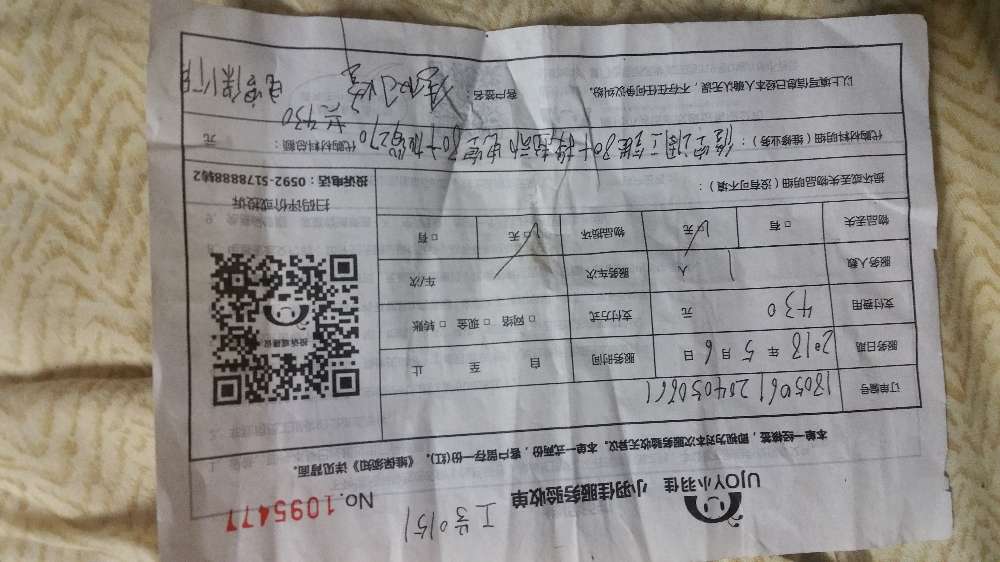 工号0151
UJOY小羽佳 小羽佳服务验收单 No.1095477
本单一经核签，即视为对本次服务验收无异议。本单一式两份，客户留存一份(红)。《维保须知》详见背面。
订单编号 180506120405066 1
服务日期 2018 年 5 月 6 日 服务时间 自 至 止
支付费用 430 元 支付方式 □ 网络 □ 现金 □ 转账
服务人数 1 人 服务车次 / 车/次
物品丢失 □ 有 □ 无 物品损坏 □ 无 □ 有
投诉或建议
扫码评价或投诉
投诉电话：0592-5178888转2
损坏或丢失物品明细（没有可不填）：
代购材料明细（维修业务）： 空调 80+ 电容80+加 270
代购材料总额： 元
共430
以上填写信息已经本人确认无误，不存在任何争议纠纷。 客户签名：